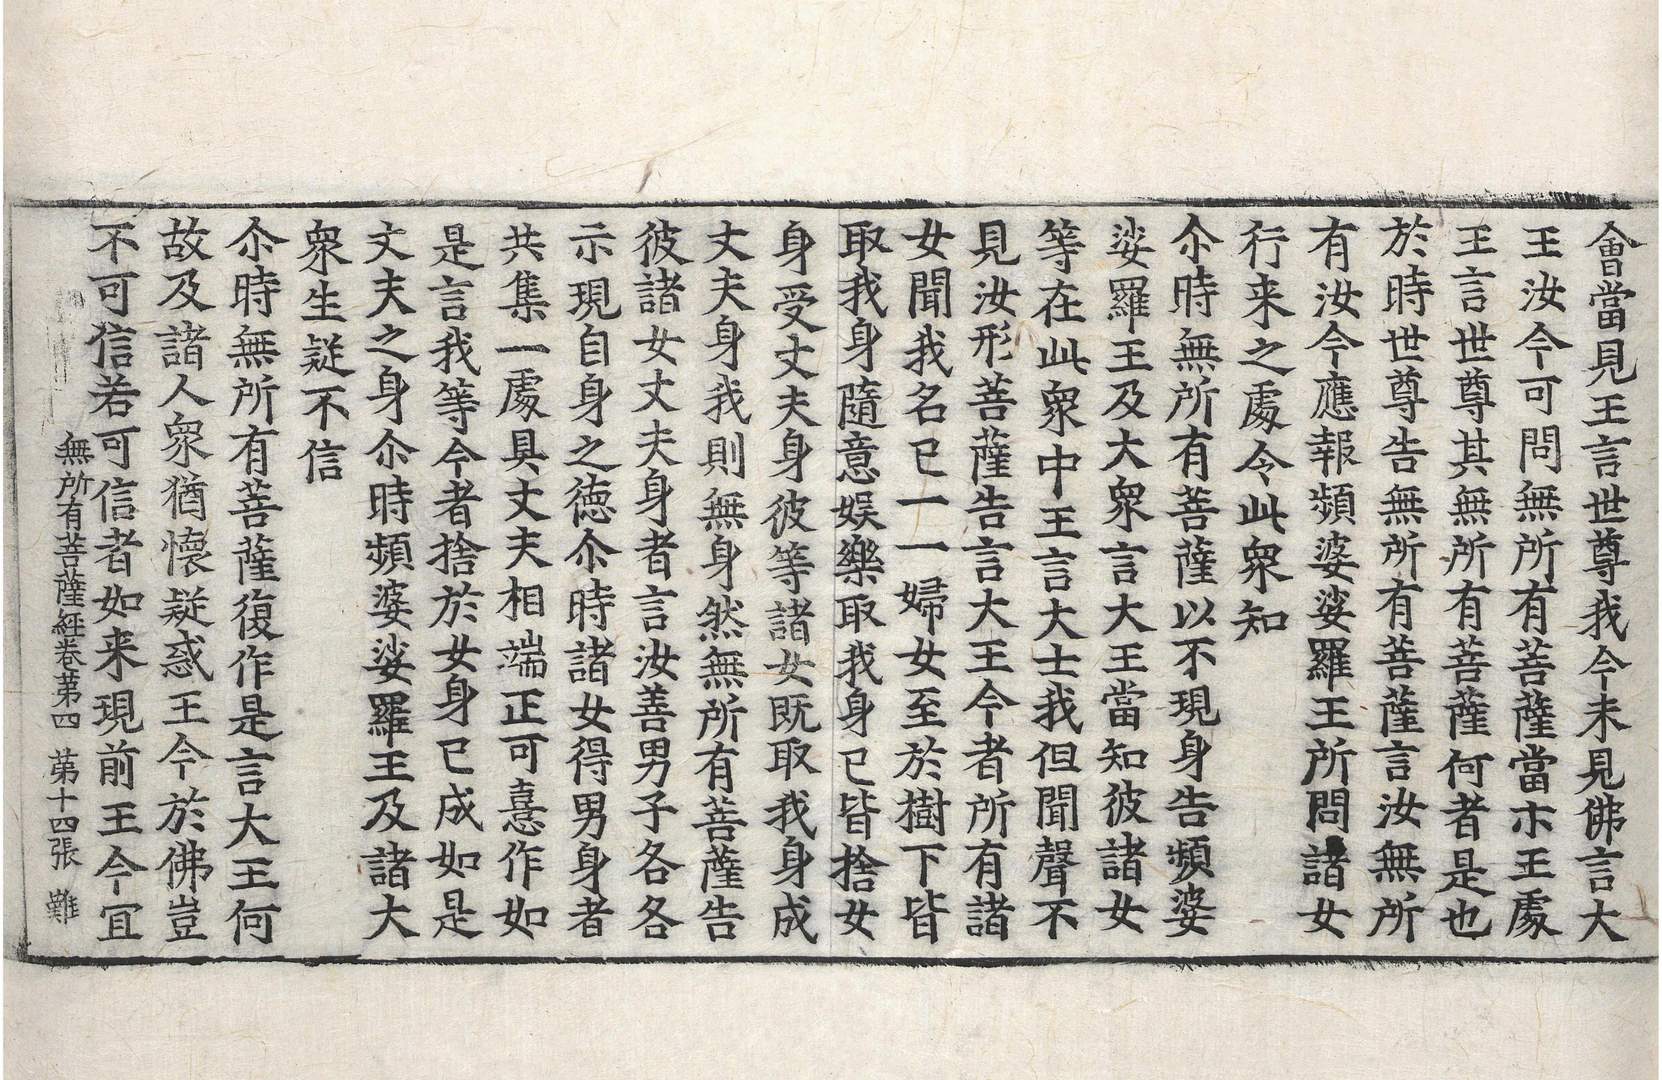 會當見王言世尊我今未見佛言大
王汝今可問無所有菩薩當示王處
王言世尊其無所有菩薩何者是也
於時世尊告無所有菩薩言汝無所
有汝今應報頻婆娑羅王所問諸女
行来之處令此衆知
尒時無所有菩薩以不現身告頻婆
娑羅王及大衆言大王當知彼諸女
等在此衆中王言大士我但聞聲不
見汝形菩薩告言大王今者所有諸
女聞我名已一一婦女至於樹下皆
取我身隨意娱樂取我身已皆捨女
身受丈夫身彼等諸女既取我身成
丈夫身我則無身然無所有菩薩告
彼諸女丈夫身者言汝善男子各各
示現自身之德尒時諸女得男身者
共集一處具丈夫相端正可憙作如
是言我等今者捨於女身已成如是
丈夫之身尒時頻婆娑羅王及諸大
衆生疑不信
尒時無所有菩薩復作是言大王何
故及諸人衆猶懷疑惑王今於佛豈
不可信若可信者如来現前王今宜
無所有菩薩經卷第四 第十四張 難